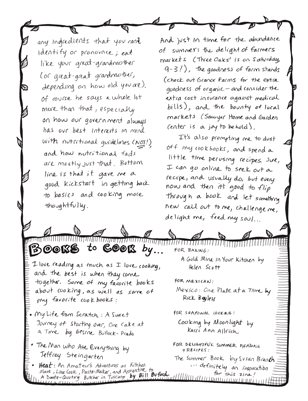 any ingredients that you can't
identify or pronounce, eat
like your great-grandmother
(or great-great grandmother,
depending on how old you are).
Of course he says a whole lot
more than that, especially
on how our government always
has our best interests in mind
with nutritional guidelines (NOT!)
and how nutritional fads
are mostly just that. Bottom
line is that it gave me a
good kickstart in getting back
to basics and cooking more
thoughtfully.
And just in time for the abundance
of summer: the delight of farmers
markets (Three Oaks' is on Saturday,
9-3!), the goodness of farm stands
(check out Granor Farms for the extra
goodness of organic - and consider the
extra cost insurance against medical
bills), and the bounty of local
markets (Sawyer Home and Garden
Center is a joy to behold).
It's also prompting me to dust
off my cookbooks, and spend a
little time perusing recipes. Sure,
I can go online to seek out a
recipe, and usually do, but every
now and then it's good to flip
through a book and let something
new call out to me, challenge me,
delight me, feed my soul...
BOOKS to COOK by...
I love reading as much as I love cooking,
and the best is when they come
together. Some of my favorite books
about cooking, as well as some of
my favorite cook books:
• My Life from Scratch: A Sweet
Journey of Starting Over, One Cake at
a Time by Gesine Bullock-Prado
• The Man Who Ate Everything by
Jeffrey Steingarten
• Heat: An Amateur's Adventures as Kitchen
Slave, Line Cook, Pasta-Maker, and Apprentice to
a Dante-Quoting Butcher in Tuscany by Bill Buford
FOR BAKING:
A Gold Mine in Your Kitchen by
Helen Scott
FOR MEXICAN:
Mexico: One Plate at a Time, by
Rick Bayless
FOR SEASONAL LIVING:
Cooking by Moonlight by
Karri Ann Allrich
FOR DELIGHTFUL SUMMER READING
& RECIPES:
The Summer Book by Susan Branch
... definitely an inspiration
for this zine!